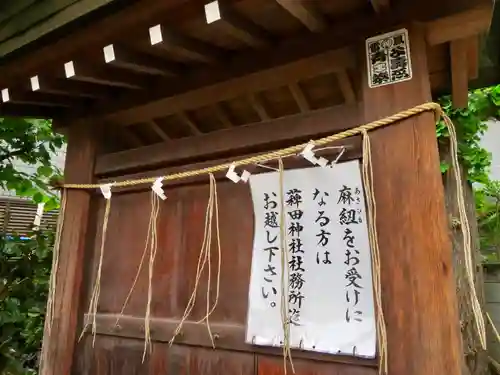 麻紐をお受けに
あさひも
なる方は
薭田神社社務所迄
お越し下さい。